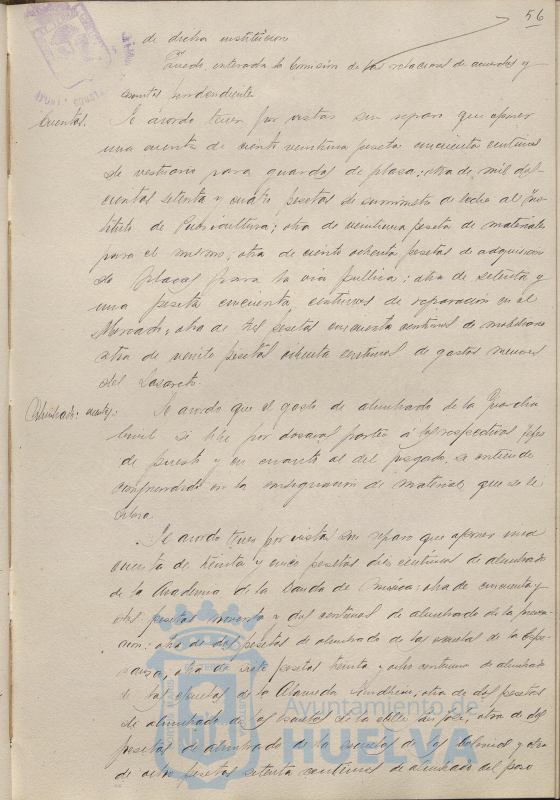 56
de dicha institución
Quedó enterada la Comisión de las relaciones de acuerdos y
asuntos
Cuentas. Se acordó tener por vistas sin reparo que oponer
una cuenta de ciento veintiuna pesetas cincuenta centimos
de vestuario para guardas de plaza; otra de mil dos
cientas setenta y cuatro pesetas de suministro de leche al Ins
tituto de Puericultura; otra de veintiuna peseta de materiales
para el mismo; otra de ciento ochenta pesetas de adquisicion
de placas para la via publica; otra de setenta y
una peseta cincuenta centimos de reparacion en el
Mercado; otra de tres pesetas cincuenta centimos de
otra de veinte pesetas ochenta centimos de gastos menores
del Lazareto.
Alumbrado: cuentas: Se acordo que el gasto de alumbrado de la Guardia
Civil se libe por partes á los respectivos Jefes
de puesto y en cuanto al del juzgado, se entiende
comprendido en la consignacion de material que se le
libra.
Se acordo tener por vistas sin reparo que oponer una
cuenta de treinta y cinco pesetas diez centimos de alumbrado
de la Academia de la Banda de Musica; otra de cincuenta y
dos pesetas noventa y dos centimos de alumbrado de la
otra de dos pesetas de alumbrado de las escuelas de la Espe-
ranza; otra de siete pesetas treinta y ocho centimos de alumbrado
de las escuelas de la Alameda Sundheim; otra de dos pesetas
de alumbrado de las escuelas de la calle San José; otra de dos
pesetas de alumbrado de la escuela de las Colonias y otra
de ocho pesetas setenta centimos de alumbrado del paso
Ayuntamiento de
HUELVA